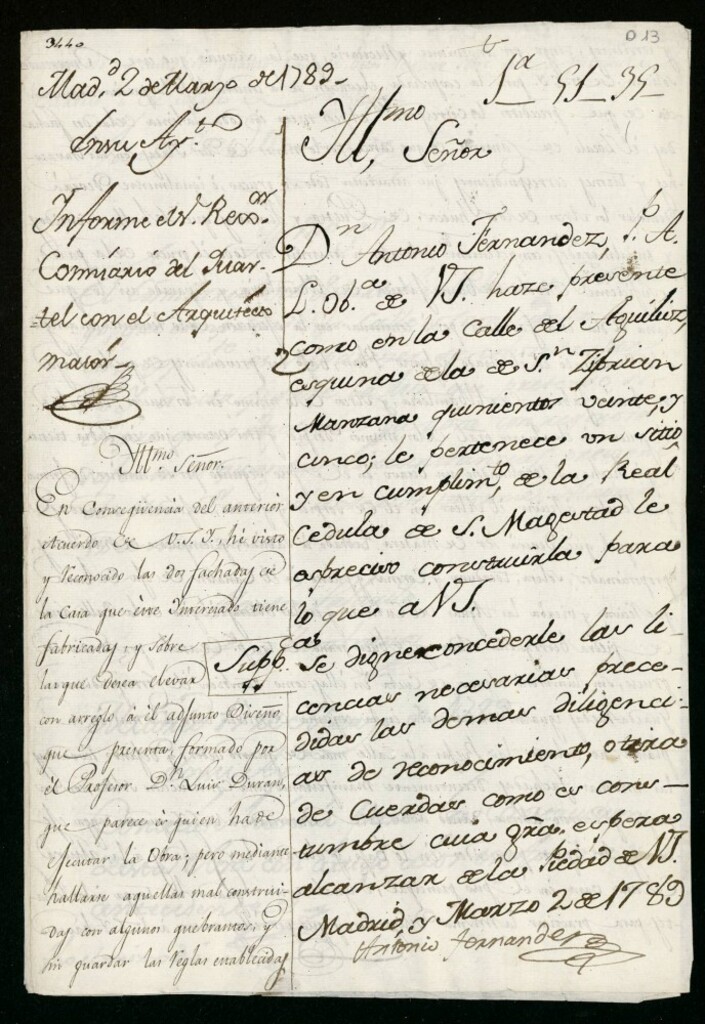 3440
D 13
Mad.d 2 de Marzo de 1789-
1a 51 35
En su Ay.to
Informe el S.r Rexor
Comisario del Quar-
-tel con el Arquitecto
maior-
Yll.mo Señor.
En Conseqüencia del anterior
Acuerdo de V.S.I., hé visto
y reconocido las dos fachadas de
la Casa que este Interesado tiene
fabricadas, y sobre
las que desea elevár
con arreglo à el adjunto Diseño
que presenta, formado por
el Profesor D.n Luis Duran,
que parece és quien ha de
ejecutar la Obra; pero mediante
hallarse aquellas mal construi-
das con algunos quebrantos, y
sin guardar las reglas establecidas
Yll,mo Señor
D.n Antonio Fernandez, P.o A.
L. Ob.a de VI. haze presente
como en la Calle del Aguiluz,
esquina de la de S.n Zibrian
Manzana quinientos veinte, y
cinco; le pertenece un sitio,
y en cumplim.to de la Real
Cedula de S. Magestad le
es preciso construirla para
lo que a VI.
Supp.cas
Se digne concederle las li-
cencias necesarias prece-
didas las demas diligenci-
as de reconocimiento, o tira
de Cuerdas como es cons-
tumbre cuia gra. espera
alcanzar de la Piedad de VI.
Madrid, y Marzo 2 de 1789
Antonio Fernandez